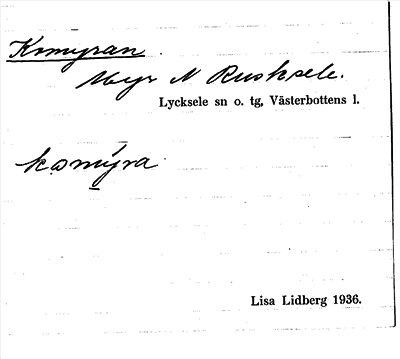 Komyran.
Myr N Rusksele.
Lycksele sn o. tg, Västerbottens l.
komýra
Lisa Lidberg 1936.